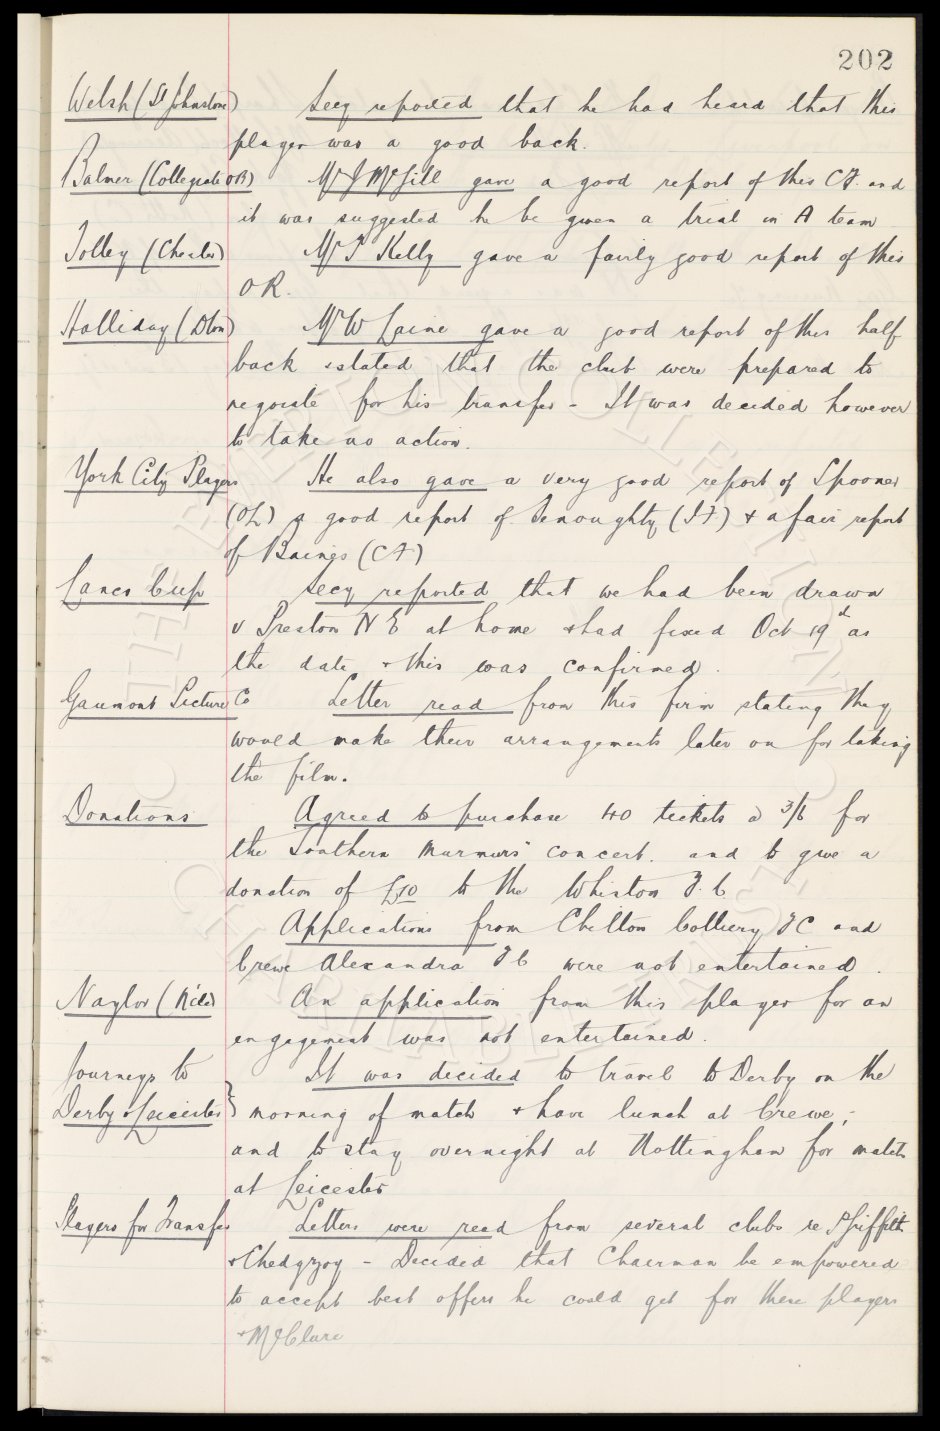 202
Welsh (St Johnstone) Secy reported that he had heard that this
player was a good back.
Balmer (Collegiate OB) Mr J McGill gave a good report of this CF. and
it was suggested he be given a trial in A team
Jolley (Chester) Mr T Kelly gave a fairly good report of this
OR.
Halliday (Dton) Mr W Laine gave a good report of this half
back & stated that the club were prepared to
negociate for his transfer - It was decided however
to take no action.
York City Players He also gave a very good report of Spooner
(OL) a good report of Fenoughty (IF) & a fair report
of Baines (CF)
Lancs Cup Secy reported that we had been drawn
v Preston N E at home & had fixed Oct 19th as
the date & this was confirmed.
Gaumont Picture Co Letter read from this firm stating they
would make their arrangements later on for taking
the film.
Donations Agreed to purchase 40 tickets @ 3/6 for
the Southern Murmurs' concert. and to give a
donation of £10 to the Whiston F.C.
Applications from Chilton Colliery FC and
Crewe Alexandra FC were not entertained.
Naylor (N'cle) An application from this player for an
engagement was not entertained.
Journeys to It was decided to travel to Derby on the
Derby & Leicester } morning of match & have lunch at Crewe,-
and to stay overnight at Nottingham for match
at Leicester
Players for Transfer Letters were read from several clubs re Griffiths
& Chedgzoy - Decided that Chairman be empowered
to accept best offers he could get for these players
& McClure
THE EVERTON COLLECTION CHARITABLE TRUST